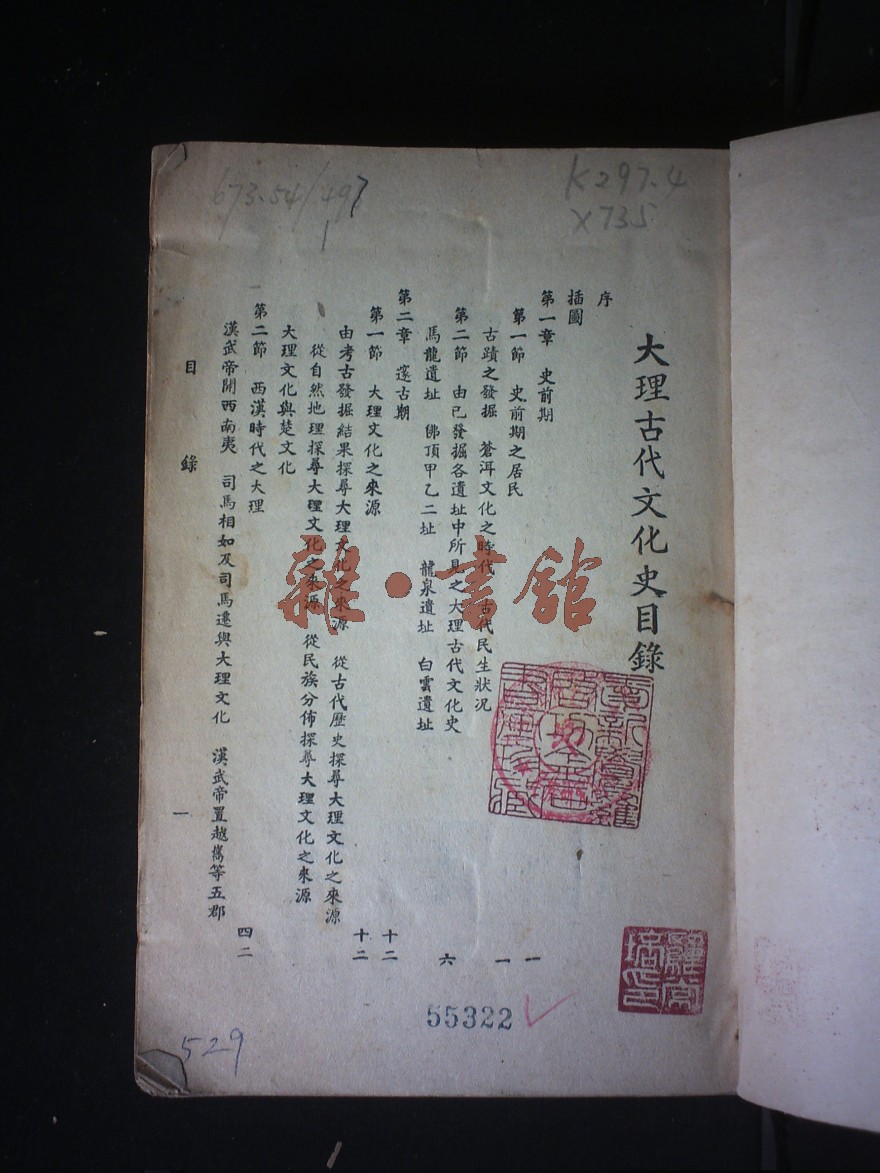 673.54/497
1
K297.4
X735
大理古代文化史目錄
序
插圖
第一章 史前期 一
第一節 史前期之居民 一
古蹟之發掘 蒼洱文化之時代 古代民生狀況
第二節 由已發掘各遺址中所見之大理古代文化史 六
馬龍遺址 佛頂甲乙二址 龍泉遺址 白雲遺址
第二章 邃古期 十二
第一節 大理文化之來源 十二
由考古發掘結果探尋大理文化之來源 從古代歷史探尋大理文化之來源
從自然地理探尋大理文化之來源 從民族分佈探尋大理文化之來源
大理文化與楚文化
第二節 西漢時代之大理 四二
漢武帝開西南夷 司馬相如及司馬遷與大理文化 漢武帝置越嶲等五郡
目錄 一
雜·書館
55322
529